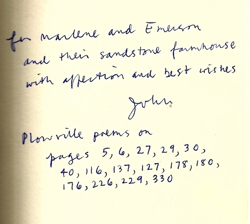 for Marlene and Emerson
and their sandstone farmhouse
with affection and best wishes
John
Plowville poems on
pages 5, 6, 27, 29, 30,
40, 116, 137, 127, 178, 180,
176, 226, 229, 330